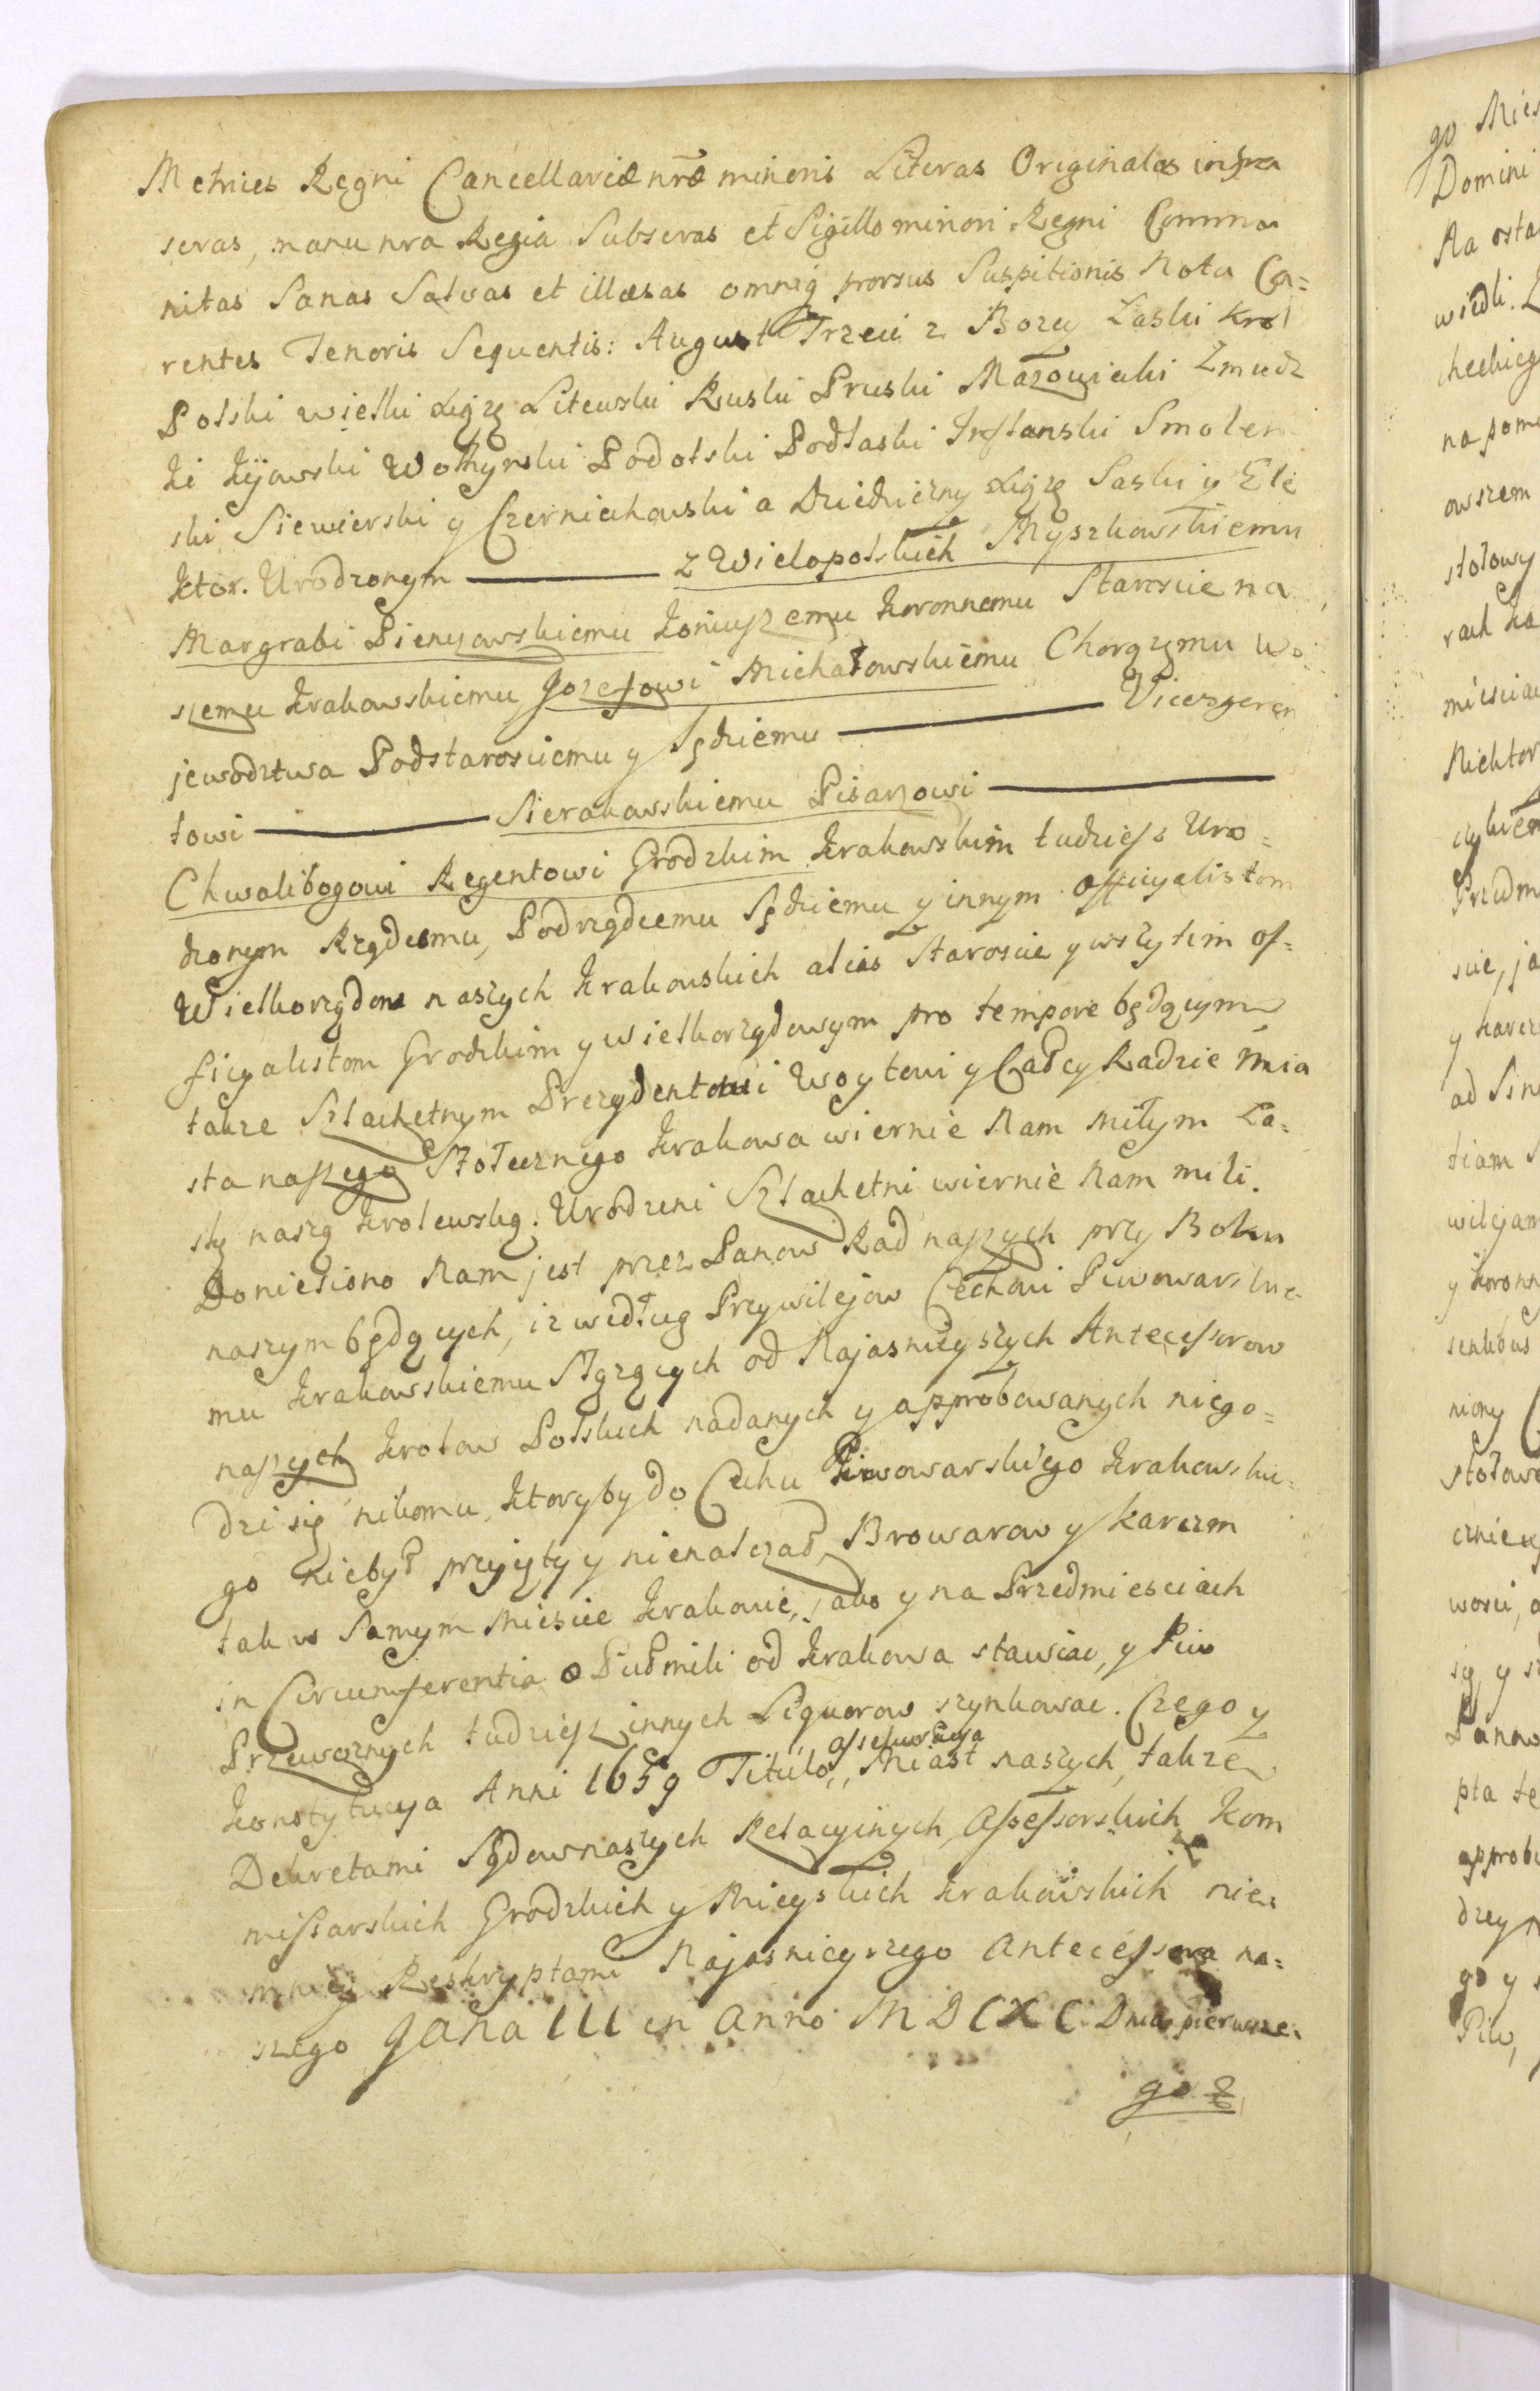 Metrices Regni Cancellariæ nræ minoris Literas Originales infra
seras, manu nra Regia Subseras et Sigillo minori Regni Commu
nitas Sanas Salvas et illæsas omniq prorsus Suspitionis Nota Ca=
rentes Tenoris Sequentis: August Trzeci z Bozey Laski Krol
Polski wielki Xiąze Litewski Ruski Pruski Mazowiecki Zmudz
ki Kijowski Wołhynski Podolski Podlaski Inflanski Smolen
ski Siewierski y Czerniechowski a Dziedziczny Xiąze Saski y Ele
ktor. Urodzonym — z Wielopolskich Myszkowskiemu
Margrabi Pienczowskiemu Koniuszemu Koronnemu Staroscie na
szemu Krakowskiemu Jozefowi Michałowskiemu Chorązemu Wo
jewodztwa Podstarosciemu y Sędziemu — Vicesgeren
towi — Sierakowskiemu Pisarzowi —
Chwalibogowi Regentowi Grodzkim Krakowskim tudziesz Uro=
dzonym Rządcemu, Podrządcemu Sędziemu y innym officyalistom
Wielkorządow naszych Krakowskich alias Staroscie y wszytkim of=
ficyalistom Grodzkim y wielkorządowym pro tempore będącym
takze Szlachetnym Prezydentowi Woytowi y Całey Radzie Mia
sta naszego Stołecznego Krakowa wiernie Nam miłym Ła=
skę naszą Krolewską. Urodzeni Szlachetni wiernie Nam mili.
Doniesiono Nam jest przez Panow Rad naszych przy Boku
naszym będących, iz według Przywilejow Cechowi Piwowarskie-
mu Krakowskiemu słązących od Najasnieyszych Antecessorow
naszych Krolow Polskich nadanych y approbowanych niego=
dzi się nikomu, ktoryby do Cechu Piwowarskiego Krakowskie=
go niebył przyięty y nienalezał, Browarow y karczm
tak w Samym Miescie Krakowie, jako y na Przedmiesciach
in Circumferentia o Pułmili od Krakowa stawiac, y Piw
Przewoznych tudziesz innych Liquorow szynkowac. Czego y
assekuracya
Konstytucya Anni 1659 Titulo,, Miast naszych, takze
Dekretami Sądow naszych Relacyinych Assessorskich Kom
missarskich Grodzkich y Mieyskich Krakowskich nie
mniey Reskryptami Najasnieyszego Antecessora na=
szego Jana III in Anno MDCXC Dnia pierwsze=
go 2